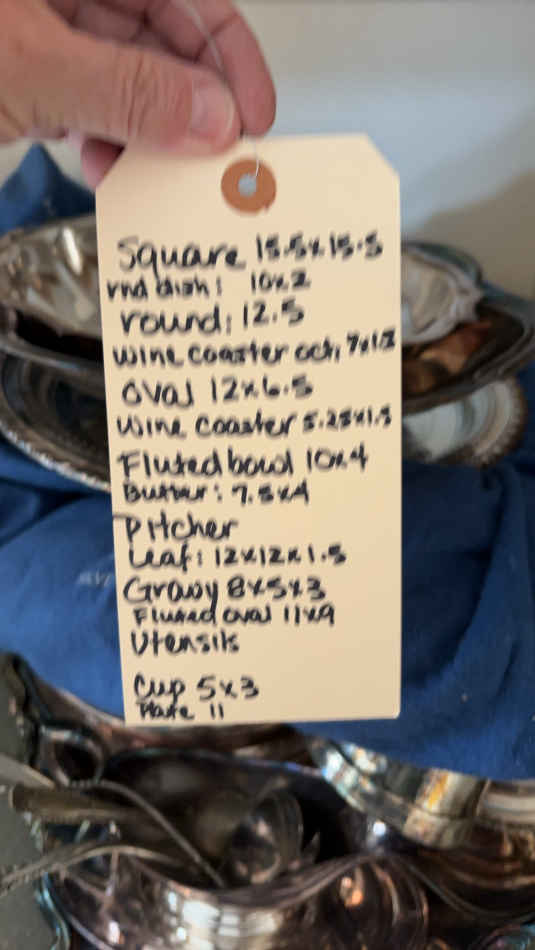 Square 15.5x15.5
rnd dish: 10x2
round: 12.5
Wine coaster oct, 7x1.5
Oval 12x6.5
Wine coaster 5.25x1.5
Fluted bowl 10x4
Butter: 7.5x4
Pitcher
Leaf: 12x12x1.5
Gravy 8x5x3
Fluted oval 11x9
Utensils
Cup 5x3
Plate 11